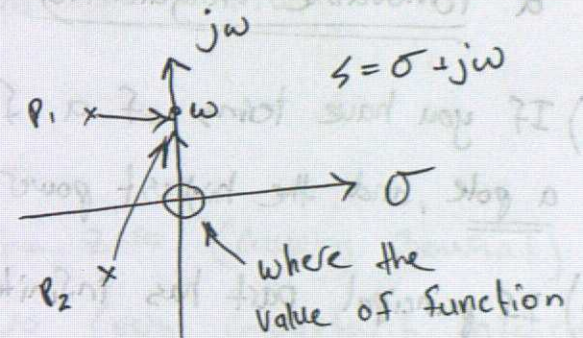 jω
s = σ + jω
P₁ × ω
σ
P₂ ×
where the
value of function